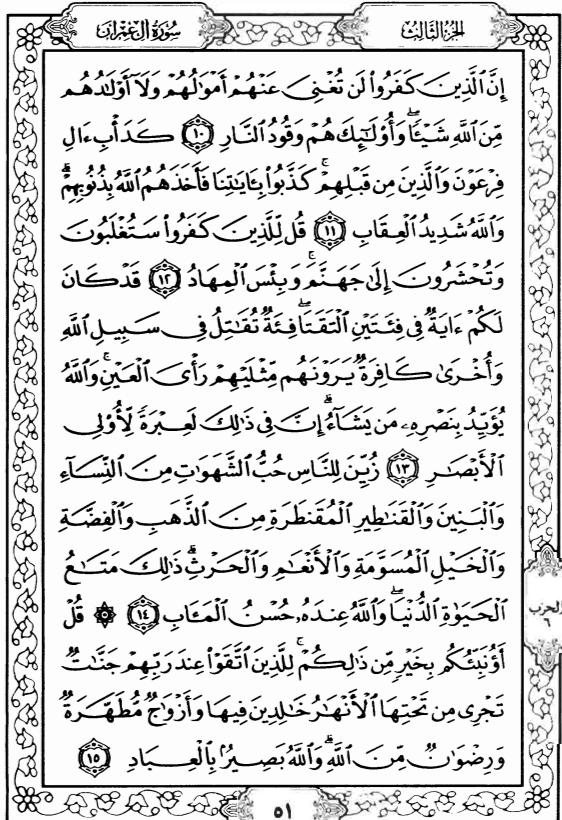 سُورَةُ آلِ عِمْرَانَ
الجُزْءُ الثَّالِثُ
إِنَّ ٱلَّذِينَ كَفَرُوا۟ لَن تُغْنِىَ عَنْهُمْ أَمْوَٰلُهُمْ وَلَآ أَوْلَٰدُهُم
مِّنَ ٱللَّهِ شَيْـًٔا ۖ وَأُو۟لَٰٓئِكَ هُمْ وَقُودُ ٱلنَّارِ ١٠ كَدَأْبِ ءَالِ
فِرْعَوْنَ وَٱلَّذِينَ مِن قَبْلِهِمْ ۚ كَذَّبُوا۟ بِـَٔايَٰتِنَا فَأَخَذَهُمُ ٱللَّهُ بِذُنُوبِهِمْ ۗ
وَٱللَّهُ شَدِيدُ ٱلْعِقَابِ ١١ قُل لِّلَّذِينَ كَفَرُوا۟ سَتُغْلَبُونَ
وَتُحْشَرُونَ إِلَىٰ جَهَنَّمَ ۚ وَبِئْسَ ٱلْمِهَادُ ١٢ قَدْ كَانَ
لَكُمْ ءَايَةٌ فِى فِئَتَيْنِ ٱلْتَقَتَا ۖ فِئَةٌ تُقَٰتِلُ فِى سَبِيلِ ٱللَّهِ
وَأُخْرَىٰ كَافِرَةٌ يَرَوْنَهُم مِّثْلَيْهِمْ رَأْىَ ٱلْعَيْنِ ۚ وَٱللَّهُ
يُؤَيِّدُ بِنَصْرِهِۦ مَن يَشَآءُ ۗ إِنَّ فِى ذَٰلِكَ لَعِبْرَةً لِّأُو۟لِى
ٱلْأَبْصَٰرِ ١٣ زُيِّنَ لِلنَّاسِ حُبُّ ٱلشَّهَوَٰتِ مِنَ ٱلنِّسَآءِ
وَٱلْبَنِينَ وَٱلْقَنَٰطِيرِ ٱلْمُقَنطَرَةِ مِنَ ٱلذَّهَبِ وَٱلْفِضَّةِ
وَٱلْخَيْلِ ٱلْمُسَوَّمَةِ وَٱلْأَنْعَٰمِ وَٱلْحَرْثِ ۗ ذَٰلِكَ مَتَٰعُ
ٱلْحَيَوٰةِ ٱلدُّنْيَا ۖ وَٱللَّهُ عِندَهُۥ حُسْنُ ٱلْمَـَٔابِ ١٤ ۞ قُلْ
أَؤُنَبِّئُكُم بِخَيْرٍ مِّن ذَٰلِكُمْ ۚ لِلَّذِينَ ٱتَّقَوْا۟ عِندَ رَبِّهِمْ جَنَّٰتٌ
تَجْرِى مِن تَحْتِهَا ٱلْأَنْهَٰرُ خَٰلِدِينَ فِيهَا وَأَزْوَٰجٌ مُّطَهَّرَةٌ
وَرِضْوَٰنٌ مِّنَ ٱللَّهِ ۗ وَٱللَّهُ بَصِيرٌۢ بِٱلْعِبَادِ ١٥
الحزب
٦
٥١